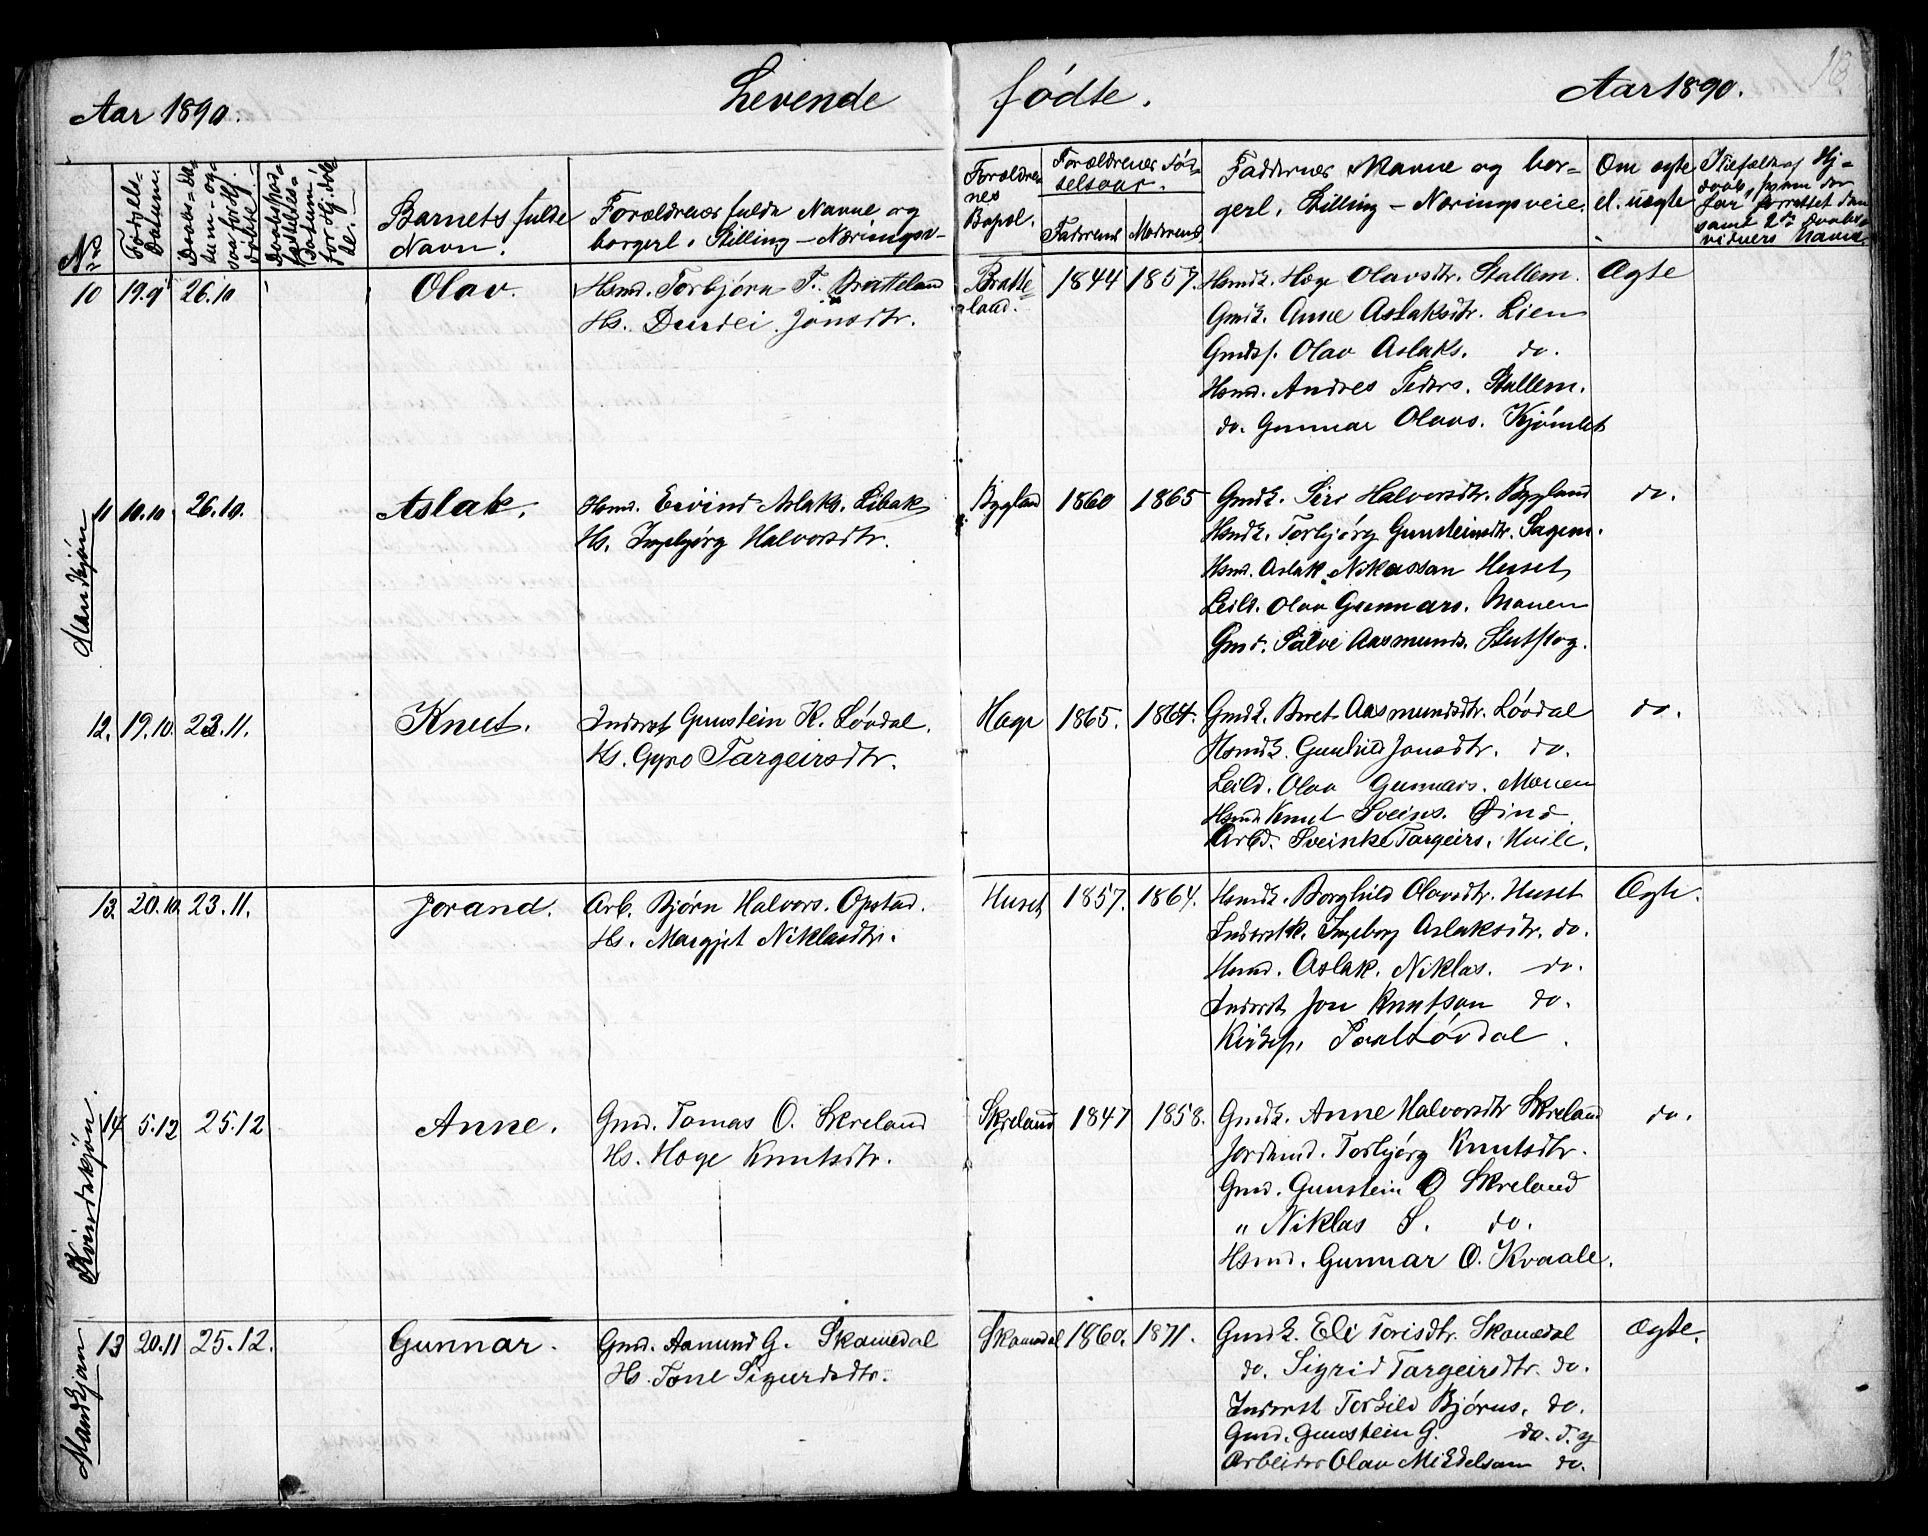 Aar 1890. Levende fødte. Aar 1890.
18
No
Fødsels-Datum.
Barnets fulde Navn.
Forældrenes fulde Navne og borgerl. Stilling – Næringsv-
Forældrenes Bopæl.
Forældrenes Fødselsaar.
Faderens Moderens
Faddernes Navne og borgerl. Stilling – Næringsveie.
Om ægte el. uægte
10 19.9 26.10 Olav. Hsmd. Torbjørn T. Bratteland Bratteland. 1844 1857. Hsmdk. Hæge Olavsdtr. Stallem. Ægte
Hs. Durdei Jonsdtr. Gmdk. Anne Aslaksdtr. Lien
Gmdsf. Olav Aslaks. do.
Hsmd. Andres Peders. Stallem.
do. Gunnar Olavs. Kjømlet
Mandkjøn
11 10.10 26.10. Aslak. Hsmd. Eivind Aslaks. Libak Bygland 1860 1865 Gmdk. Siri Halvorsdtr. Bygland do.
Hs. Ingebjørg Halvorsdtr. Hsmdk. Torbjørg Gunsteinsdtr. Sagem.
Hsmd. Aslak Niklasson Huset
Leild. Olav Gunnars. Monen
Gmd. Salve Aasmunds. Stutskog.
12. 19.10. 23.11. Knut. Inderst Gunstein K. Løvdal. Hæge 1865. 1864. Gmdk. Biret Aasmundsdtr. Løvdal do.
Hs. Gyro Targeirsdtr. Hsmdk. Gunhild Jonsdtr. do.
Leild. Olav Gunnars. Monen
Hsmd. Knut Sveins.
Arbd. Sveinke Targeirs.
13. 20.10. 23.11. Jorand. Arb. Bjørn Halvors. Opstad. Huset 1857. 1864. Hsmdk. Borghild Olavsdtr. Huset Ægte.
Hs. Margjit Niklasdtr. Inderstk. Ingeborg Aslaksdtr. do.
Hsmd. Aslak. Niklas. do.
Inderst Jon Knutson do.
Kirkesp. Paal Løvdal.
Kvindekjøn.
14 5.12 25.12 Anne. Gmd. Tomas O. Skreland Skreland 1847 1858. Gmdk. Anne Halvorsdtr Skreland do.
Hs. Hæge Knutsdtr. Jordmd. Torbjørg Knutsdtr.
Gmd. Gunstein O Skreland
" Niklas S. do.
Hsmd. Gunnar O. Kvaale.
Mandkjøn
13 20.11 25.12. Gunnar. Gmd. Aamund G. Skamedal Skamedal 1860. 1871. Gmdk. Eli Torisdtr. Skamedal Ægte.
Hs. Tone Sigurdsdtr. do. Sigrid Targeirsdtr. do.
Inderst Torkild Bjørns. do.
Gmd. Gunstein G. do. d. y
Arbeider Olav Mikkelsson do.